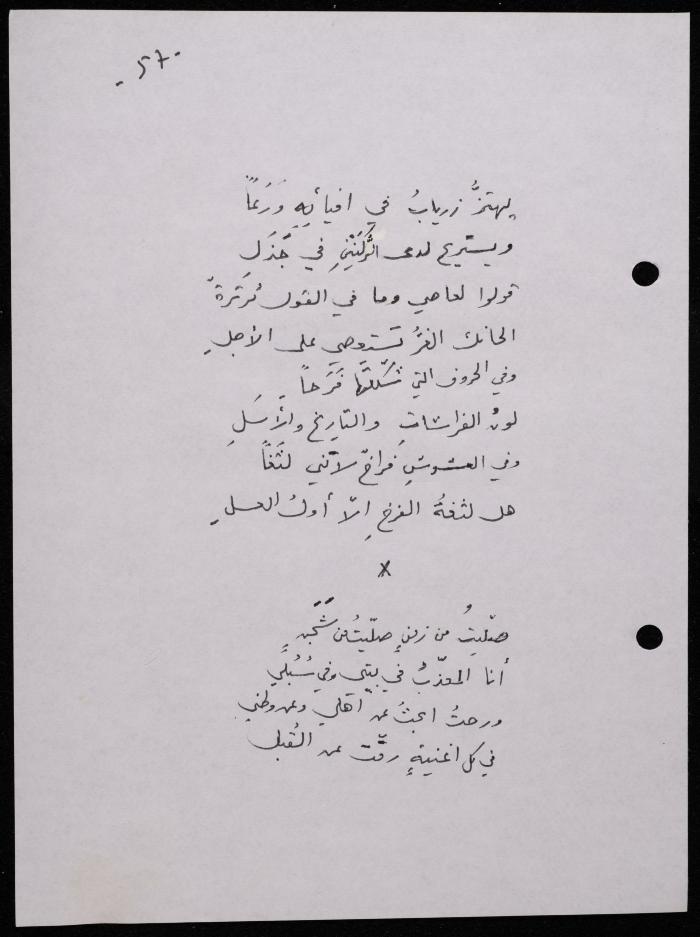 - ٥٧ -
يهتزُّ زريابُ في افيائِهِ وَرَعاً
ويستريح لدى الرُّكنَيْنِ في جَذَل
قولوا لعاصي وما في القول ثرثرةٌ
الحانك الغرُّ تستعصي على الأجلِ
وفي الحروف التي شكّلتَها فَرَحاً
لونُ الفراشاتِ والتّاريخ والأسَلِ
وفي العشوشِ فراخٌ لأنني لَثَغاً
هل لثغةُ الفرخِ إلّا أولُ العسلِ
x
صلّيتُ من زمنٍ صلّيتُ من شَجَنٍ
أنا المعذّبُ في بيتي وفي سُبُلي
ورحتُ ابحثُ عن أهلي وعن وطني
في كل اغنيةٍ رقّت عن القُبل